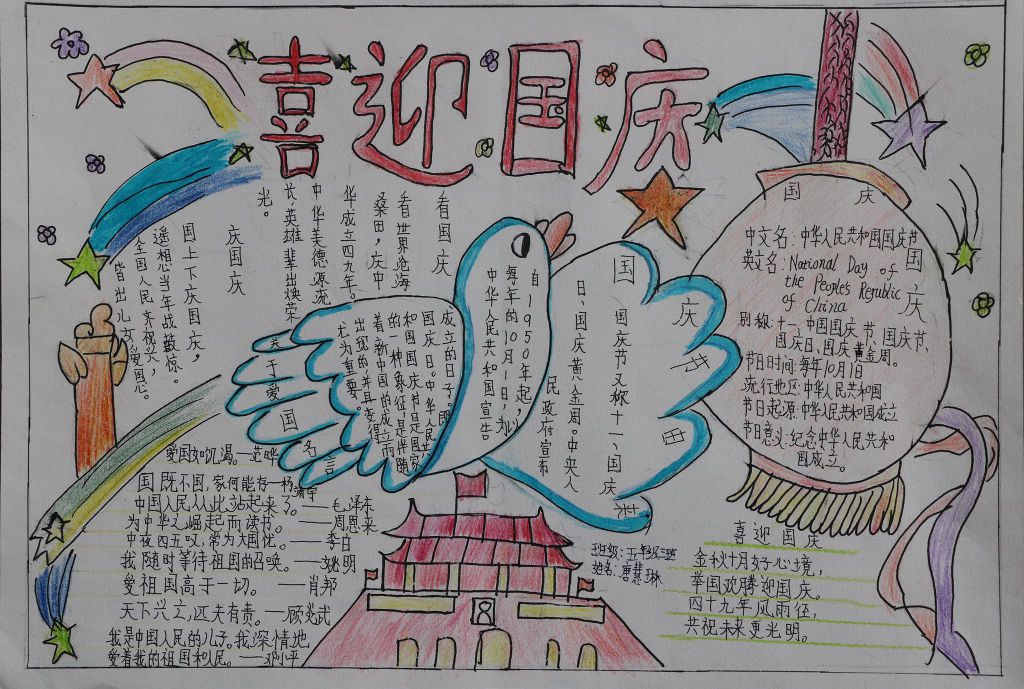 喜迎国庆
庆国庆
国上下庆国庆，
遥想当年战鼓惊。
全国人民齐祝兴，
皆出儿女爱国恩。
看国庆
看世界沧海
桑田，庆中
华成立四九年。
中华美德源流
长，英雄辈出焕荣
光。
国庆节由来
自1950年起，以
每年的10月1日，
中华人民共和国宣告
成立的日子。即
国庆日。中华人民共
和国国庆节是国家
的一种象征，是伴随
着新中国的成立而
出现的，并且变得
尤为重要。
国庆节又称十一、国庆
日、国庆黄金周。中央人
民政府宣布
国庆
国庆
中文名：中华人民共和国国庆节
英文名：National Day of
the People's Republic
of China
别称：十一，中国国庆节，国庆节，
国庆日，国庆黄金周。
节日时间：每年10月1日
流行地区：中华人民共和国
节日起源：中华人民共和国成立
节日意义：纪念中华人民共和
国成立。
关于爱国名言
爱国如饥渴。——范晔
国既不国，家何能存——杨靖宇
中国人民从此站起来了。——毛泽东
为中华之崛起而读书。——周恩来
中夜四五叹，常为大国忧。——李白
我随时等待祖国的召唤。——姚明
爱祖国高于一切。——肖邦
天下兴亡，匹夫有责。——顾炎武
我是中国人民的儿子。我深情地
爱着我的祖国和人民。——邓小平
班级：五年级三班
姓名：曹慧琳
喜迎国庆
金秋十月好心境，
举国欢腾迎国庆。
四十九年风雨径，
共祝未来更光明。